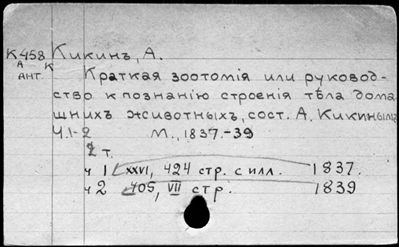 К 458 Кикинъ, А.
А К
АНТ.
Краткая зоотомія или руковод-
ство к познанію строенія тѣла дома
шнихъ животныхъ, сост. А. Кикинымъ
Ч.1-2 М., 1837.-39
2 т.
ч 1 XXVI, 424 стр. с илл. 1837.
ч 2 405, VII стр. 1839